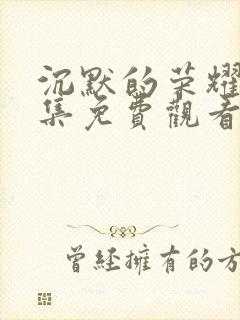 沉默的荣耀
集免費觀看
曾經擁有的方